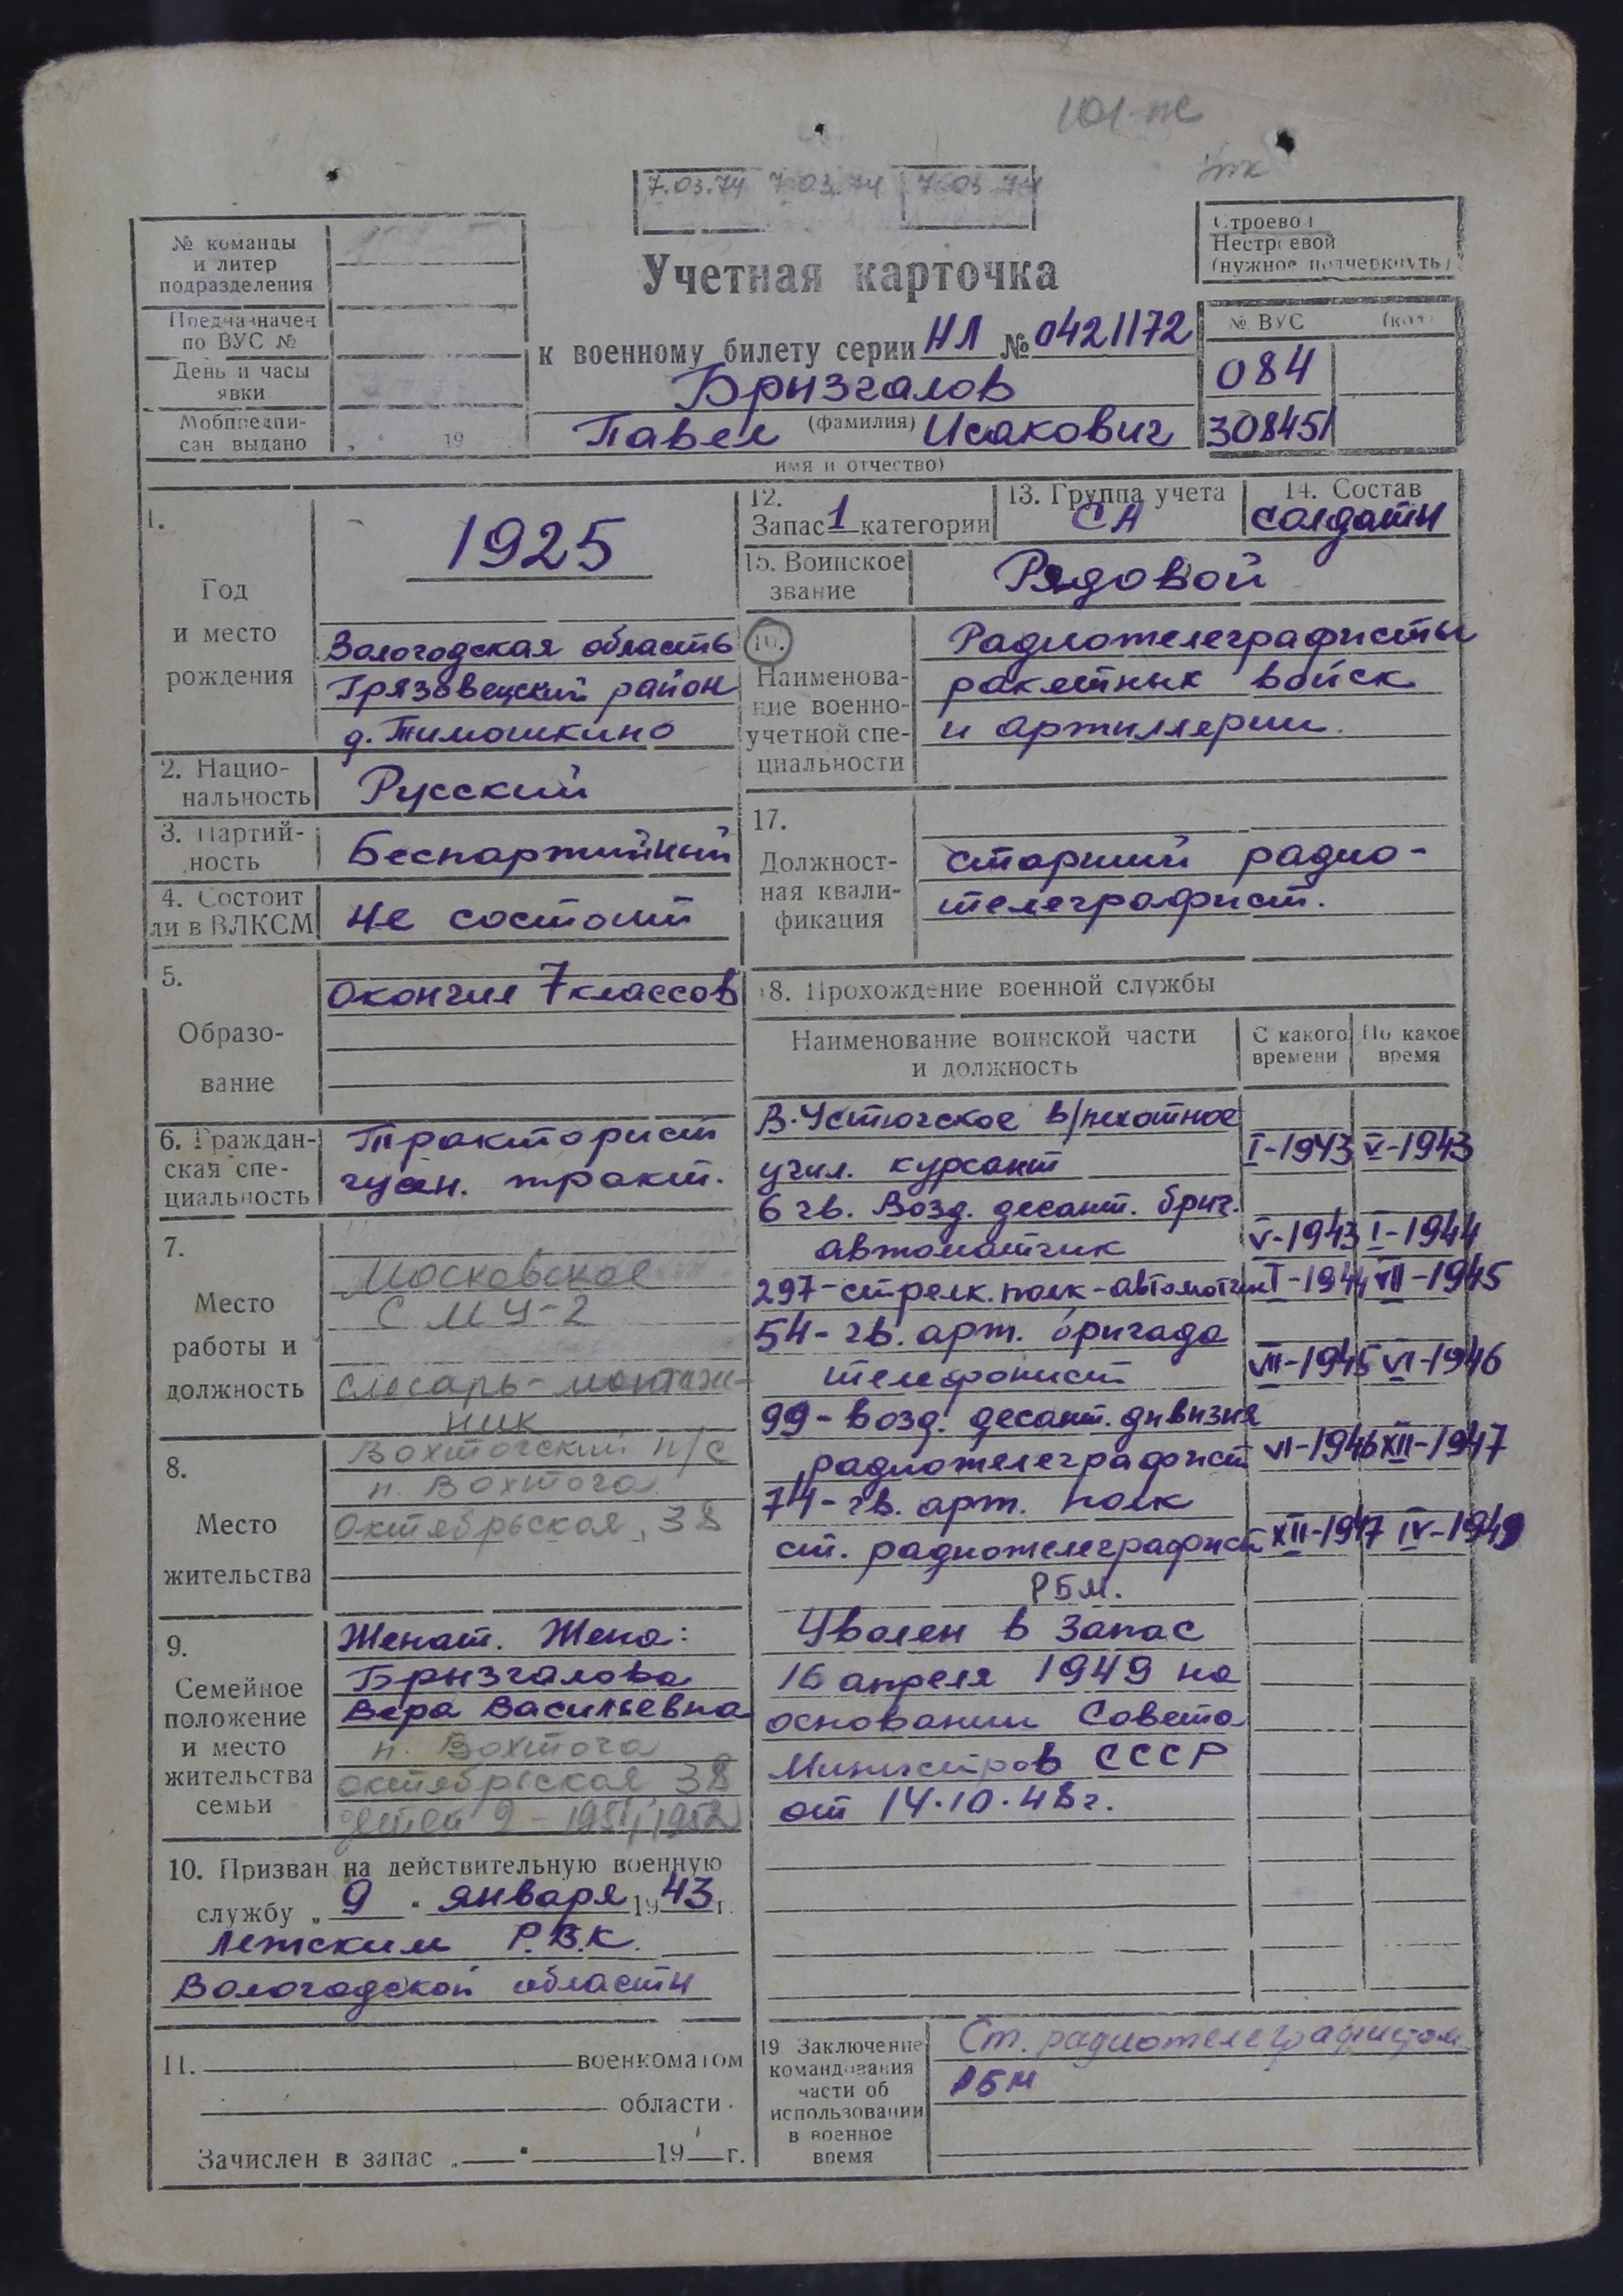 101-пс
7.03.74 7.03.74 7.03.74
Строевой
Нестроевой
(нужное подчеркнуть)
№ команды
и литер
подразделения
Предназначен
по ВУС №
День и часы
явки
Мобпредпи-
сан выдано
19
Учетная карточка
к военному билету серии НЛ № 0421172
Брызгалов
(фамилия)
Павел Исакович
имя и отчество)
№ ВУС (код)
084
308451
1.
Год
и место
рождения
1925
Вологодская область
Грязовецкий район
д. Тимошкино
2. Нацио-
нальность
Русский
3. Партий-
ность
Беспартийный
4. Состоит
ли в ВЛКСМ
не состоит
5.
Образо-
вание
Окончил 7 классов
6. Граждан-
ская спе-
циальность
Тракторист
гусен. тракт.
7.
Место
работы и
должность
Московское
СМУ-2
слесарь-монтаж-
ник
8.
Место
жительства
Вохтогский п/с
п. Вохтога
Октябрьская, 38
9.
Семейное
положение
и место
жительства
семьи
Женат. Жена:
Брызгалова
Вера Васильевна
п. Вохтога
октябрьская 38
детей 2 - 1951, 1952
10. Призван на действительную военную
службу „ 9 " января 1943 г.
Лежским Р.В.К.
Вологодской области
11. военкоматом
области.
Зачислен в запас „ " 19 г.
12.
Запас 1 категории
13. Группа учета
СА
14. Состав
солдаты
15. Воинское
звание
Рядовой
16.
Наименова-
ние военно-
учетной спе-
циальности
Радиотелеграфисты
ракетных войск
и артиллерии.
17.
Должност-
ная квали-
фикация
старший радио-
телеграфист.
18. Прохождение военной службы
Наименование воинской части
и должность
С какого
времени
По какое
время
В-Устюгское в/пехотное
учил. курсант I-1943 V-1943
6 гв. Возд. десант. бриг.
автоматчик V-1943 I-1944
297-стрелк. полк-автоматчик I-1944 VII-1945
54-гв. арт. бригада
телефонист VII-1945 VI-1946
99-возд. десант. дивизия
радиотелеграфист VI-1946 XII-1947
74-гв. арт. полк
ст. радиотелеграфист XII-1947 IV-1949
РБМ.
Уволен в запас
16 апреля 1949 на
основании Совета
Министров СССР
от 14.10.48г.
19 Заключение
командования
части об
использовании
в военное
время
Ст. радиотелеграфистом
РБМ